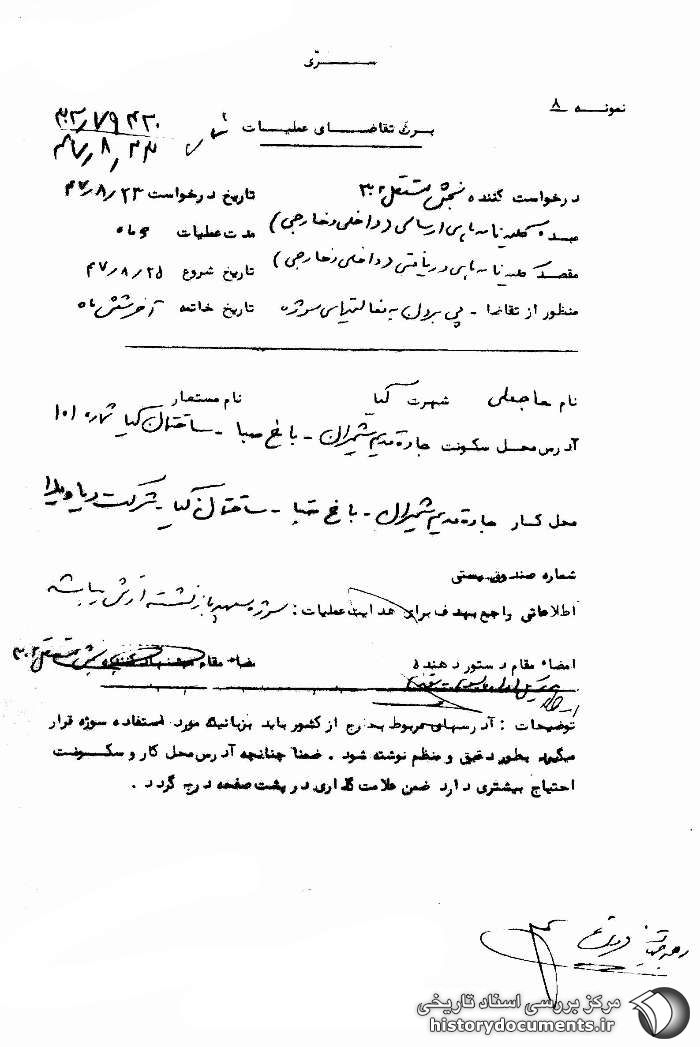 سـرّی
نمونه ۸
برگ تقاضای عملیات
۳۲/۷۹۴۲۰
۴۷/۸/۲۳
درخواست کننده بخش مستقل ۳۰۲ تاریخ درخواست ۴۷/۸/۲۳
مبداء کلیه نامه های ارسالی (داخلی و خارجی) مدت عملیات ۶ ماه
مقصد کلیه نامه های دریافتی (داخلی و خارجی) تاریخ شروع ۴۷/۸/۲۵
منظور از تقاضا - پی بردن به فعالیتهای سوژه تاریخ خاتمه آخر شش ماه
نام حاجعلی شهرت کیا نام مستعار
آدرس محل سکونت جاده قدیم شمیران - باغ صبا - ساختمان کیا شماره ۱۰۱
محل کار جاده قدیم شمیران - باغ صبا - ساختمان کیا - شرکت
شماره صندوق پستی
اطلاعاتی راجع بهدف برای هدایت عملیات : سوژه سپهبد بازنشسته ارتش میباشد
امضاء مقام دستور دهنده امضاء مقام بخش مستقل ۳۰۲
توضیحات : آدرسهای مربوط بخارج از کشور باید بزبانیکه مورد استفاده سوژه قرار
میگیرد بطور دقیق و منظم نوشته شود . ضمنا چنانچه آدرس محل کار و سکونت
احتیاج بیشتری دارد ضمن علامت گذاری در پشت صفحه درج گردد .
مرکز بررسی اسناد تاریخی
historydocuments.ir